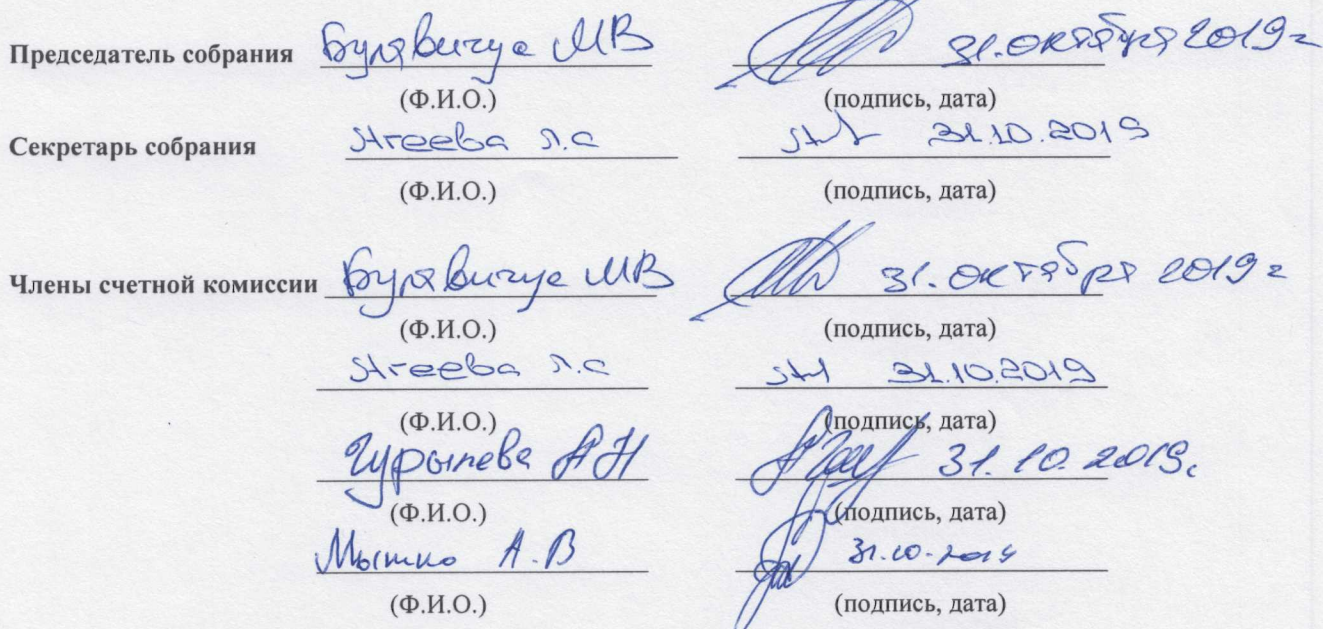 Председатель собрания Булавичус МВ 31. октября 2019 г
(Ф.И.О.) (подпись, дата)
Секретарь собрания Агеева Л.С 31.10.2019
(Ф.И.О.) (подпись, дата)
Члены счетной комиссии МВ 31. октября 2019 г
(Ф.И.О.) (подпись, дата)
Агеева Л.С 31.10.2019
(Ф.И.О.) (подпись, дата)
АН 31.10.2019.
(Ф.И.О.) (подпись, дата)
Мытко А.В 31.10.2019
(Ф.И.О.) (подпись, дата)